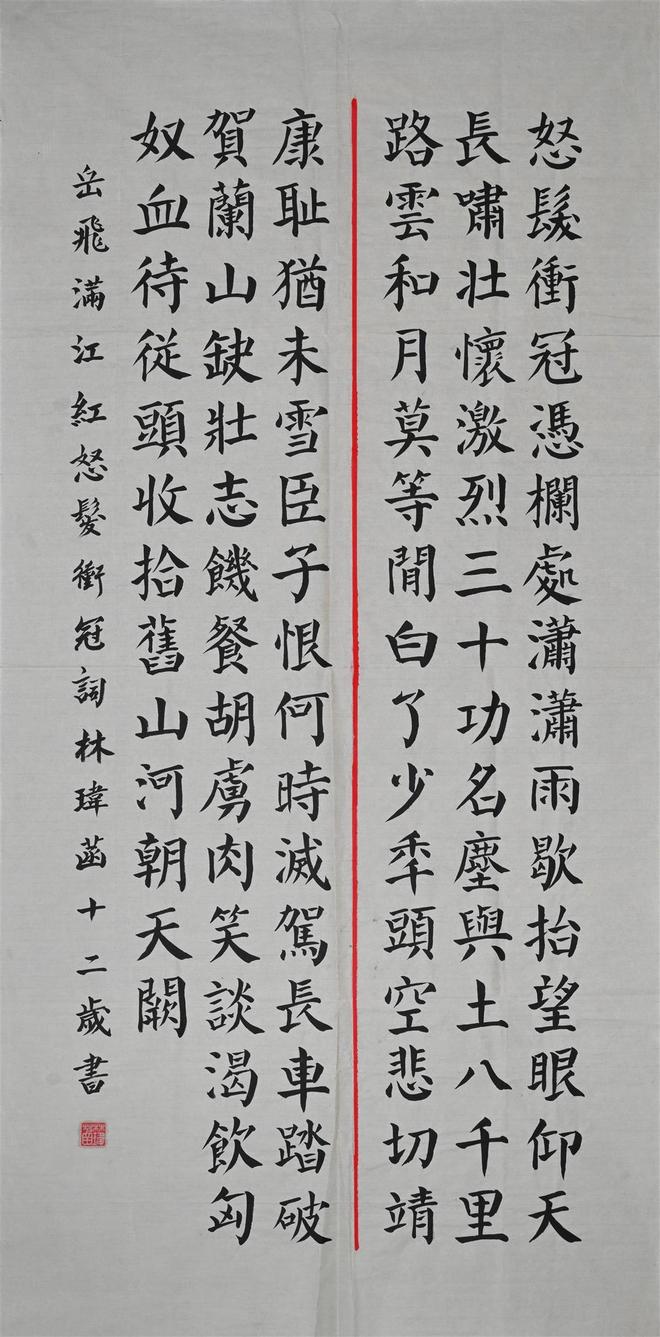 怒髮衝冠憑欄處瀟瀟雨歇抬望眼仰天
長嘯壯懷激烈三十功名塵與土八千里
路雲和月莫等閒白了少秊頭空悲切靖
康耻猶未雪臣子恨何時滅駕長車踏破
賀蘭山缺壯志饑餐胡虜肉笑談渴飲匈
奴血待從頭收拾舊山河朝天闕
岳飛滿江紅怒髮衝冠詞林瑋菡十二歲書